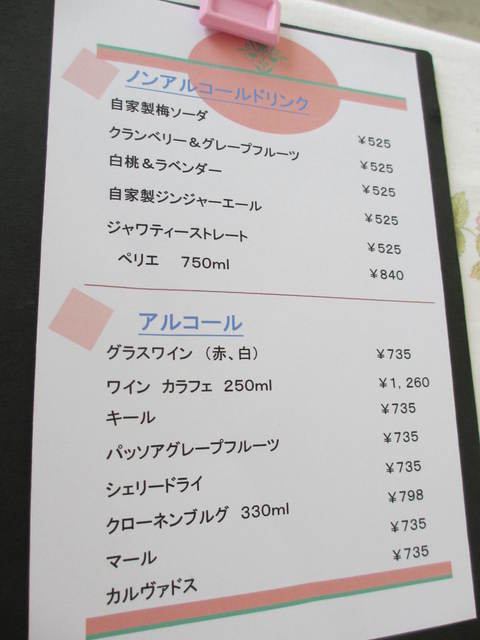 ノンアルコールドリンク
自家製梅ソーダ ¥525
クランベリー＆グレープフルーツ ¥525
白桃＆ラベンダー ¥525
自家製ジンジャーエール ¥525
ジャワティーストレート ¥525
ペリエ 750ml ¥840
アルコール
グラスワイン （赤、白） ¥735
ワイン カラフェ 250ml ¥1,260
キール ¥735
パッソアグレープフルーツ ¥735
シェリードライ ¥735
クローネンブルグ 330ml ¥798
マール ¥735
カルヴァドス ¥735